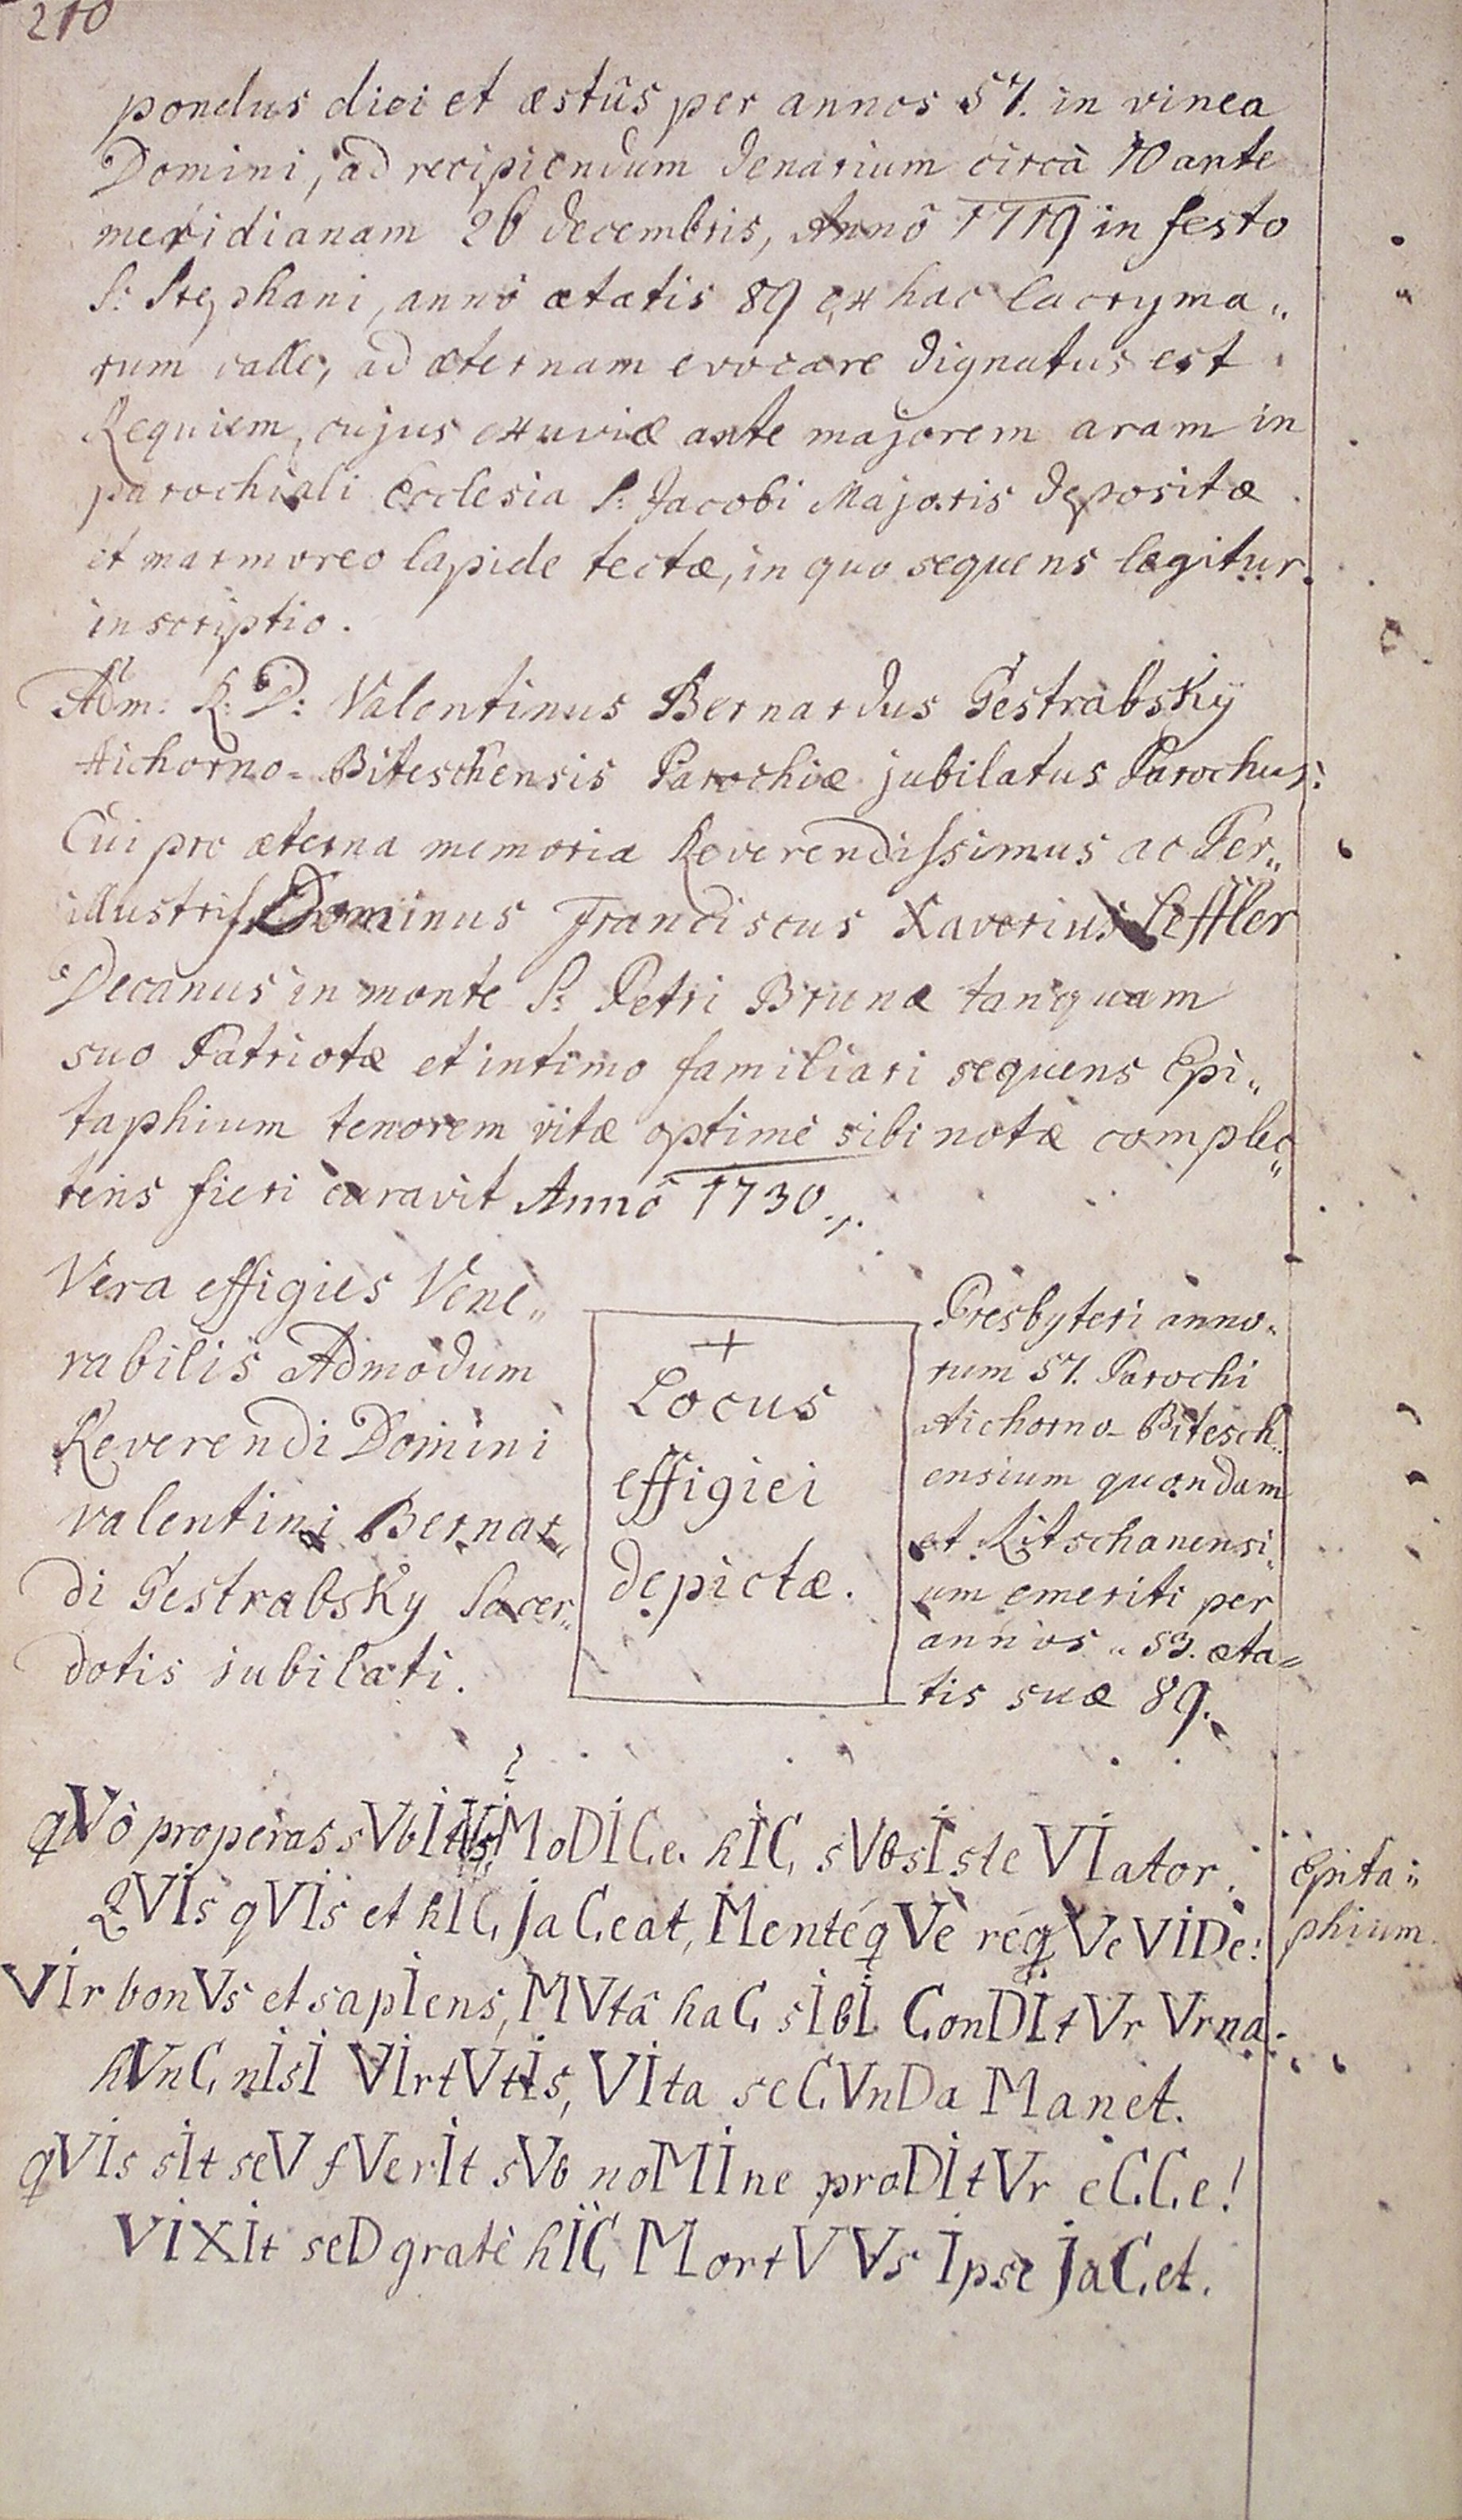 210
pondus diei et æstûs per annos 57. in vinea
Domini, ad recipiendum denarium circà 10 ante
meridianam 26 decembris, Annô 1719 in festo
S: Stephani, annô ætatis 89 ex hac lacryma„
rum valle, ad æternam evocare dignatus est
Requiem, cujus exuviæ ante majorem aram in
parochiali Ecclesia S: Jacobi Majoris depositæ
et marmoreo lapide tectæ, in quo sequens legitur
inscriptio.
Adm: R: D: Valentinus Bernardus Gestrabskÿ
Aichorno=Biteschensis Parochiæ jubilatus Parochus:
Cui pro æterna memoria Reverendissimus ac Per„
illustris Dominus Franciscus Xaverius Leffler
Decanus in monte S: Petri Brunæ tanquam
suo Patriotæ et intimo familiari sequens Epi„
taphium tenorem vitæ optimè sibi notæ complec„
tens fieri curavit Annô 1730.
Vera effigies Vene„
rabilis Admodum
Reverendi Domini
Valentini Bernar„
di Gestrabsky Sacer„
dotis jubilati.
+
Locus
effigiei
depictæ.
Presbyteri anno=
rum 57. Parochi
Aichorno-Bitesch„
ensium quondam
et Ritschanensi„
um emeriti per
annos „ 53. æta=
tis suæ 89.
qVò properas sVbItVs? MoDICe hIC sVbsIste VIator.
QVIs qVIs et hIC JaCeat, MentéqVe réqVe VIDe:
VIr bonVs et sapIens, MVtâ haC sIbI ConDItVr Vrna.
hVnC nIsI VIrtVtIs, VIta seCVnDa Manet.
qVIs sIt seV fVerIt sVb noMIne proDItVr eCCe!
VIXIt seD gratè hIC MortVVs Ipse JaCet.
Epita„
phium.